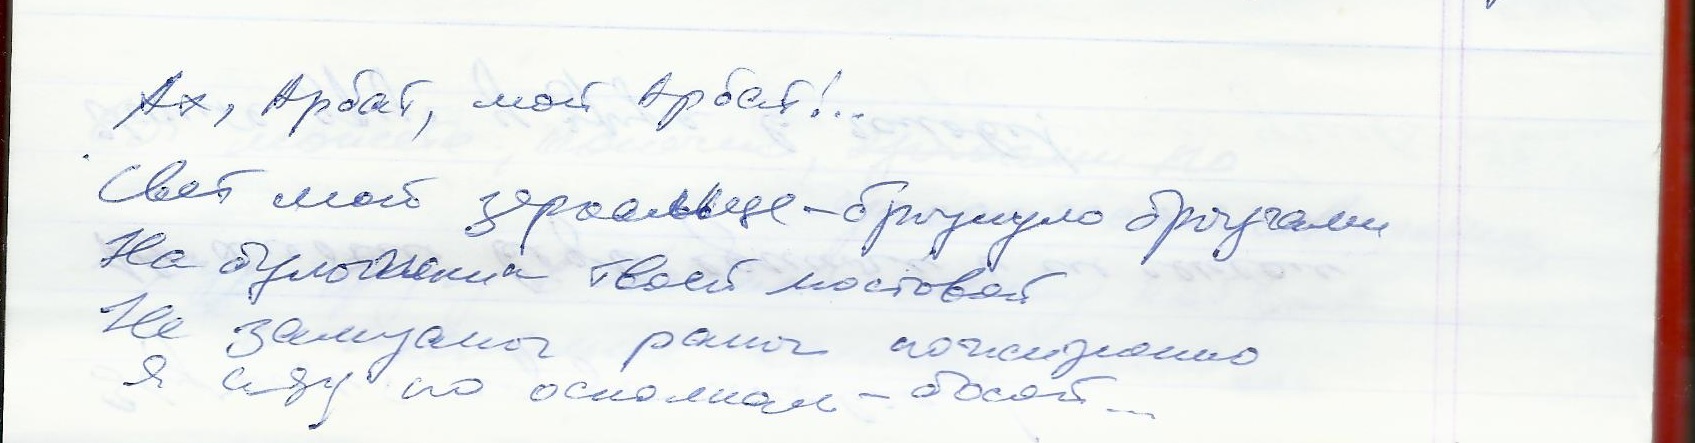 Ах, Арбат, мой Арбат!..
Свет мой зеркальце – брызнуло брызгами
На булыжник твоей мостовой
Не замузано раны пожизненно
Я иду по осколкам – босой...